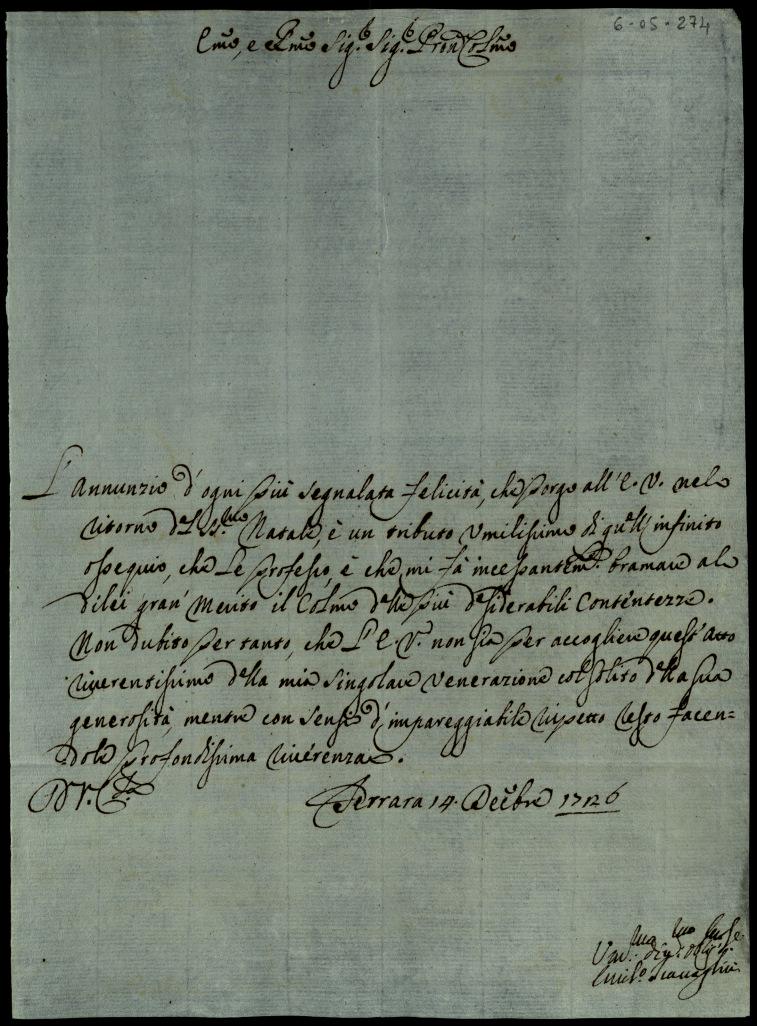 6-05-274
Emo, e Rmo Sigr. Sigr. Pron Colmo
L'annunzio d'ogni più segnalata felicità, che porgo all'E. V. nel
ritorno del SS.mo Natale, è un tributo umilissimo di quell'infinito
ossequio, che Le professo, e che mi fà incessantemte. bramare al
di lei gran' merito il Colmo delle più desiderabili Contentezze.
Non dubito per tanto, che L'E. V. non sia per accogliere quest'atto
riverentissimo della mia singolare venerazione col solito della sua
generosità, mentre con sensi d'impareggiabile rispetto resto facen=
dole profondissima riverenza.
D. V. Eza
Ferrara 14. Decēbre 1726